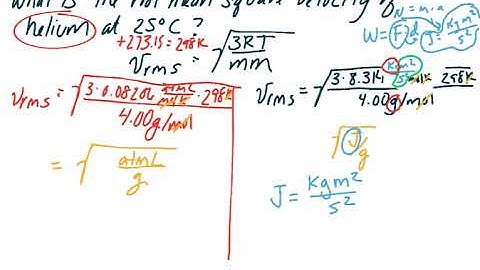 What is the root mean square velocity of
helium at 25°C?
+273.15 = 298K
Vrms = √3RT/mm
N = m·a
W = F·d J = kgm²/s²
Vrms = √3·0.0820L atmL/molK·298K / 4.00g/mol
= √atmL/g
Vrms = √3·8.314 kgm²/s² molK 298K / 4.00g/mol
√J/g
J = Kgm²/s²